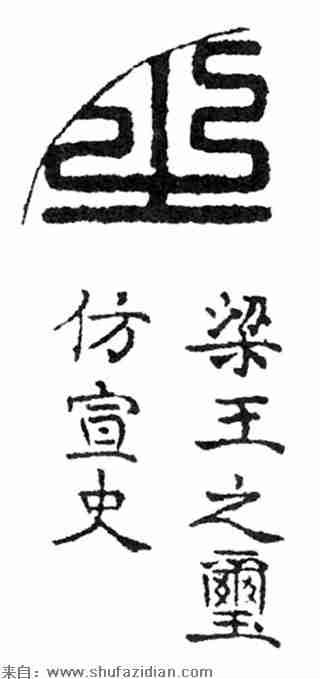 梁王之璽
仿宣史
来自：www.shufazidian.com